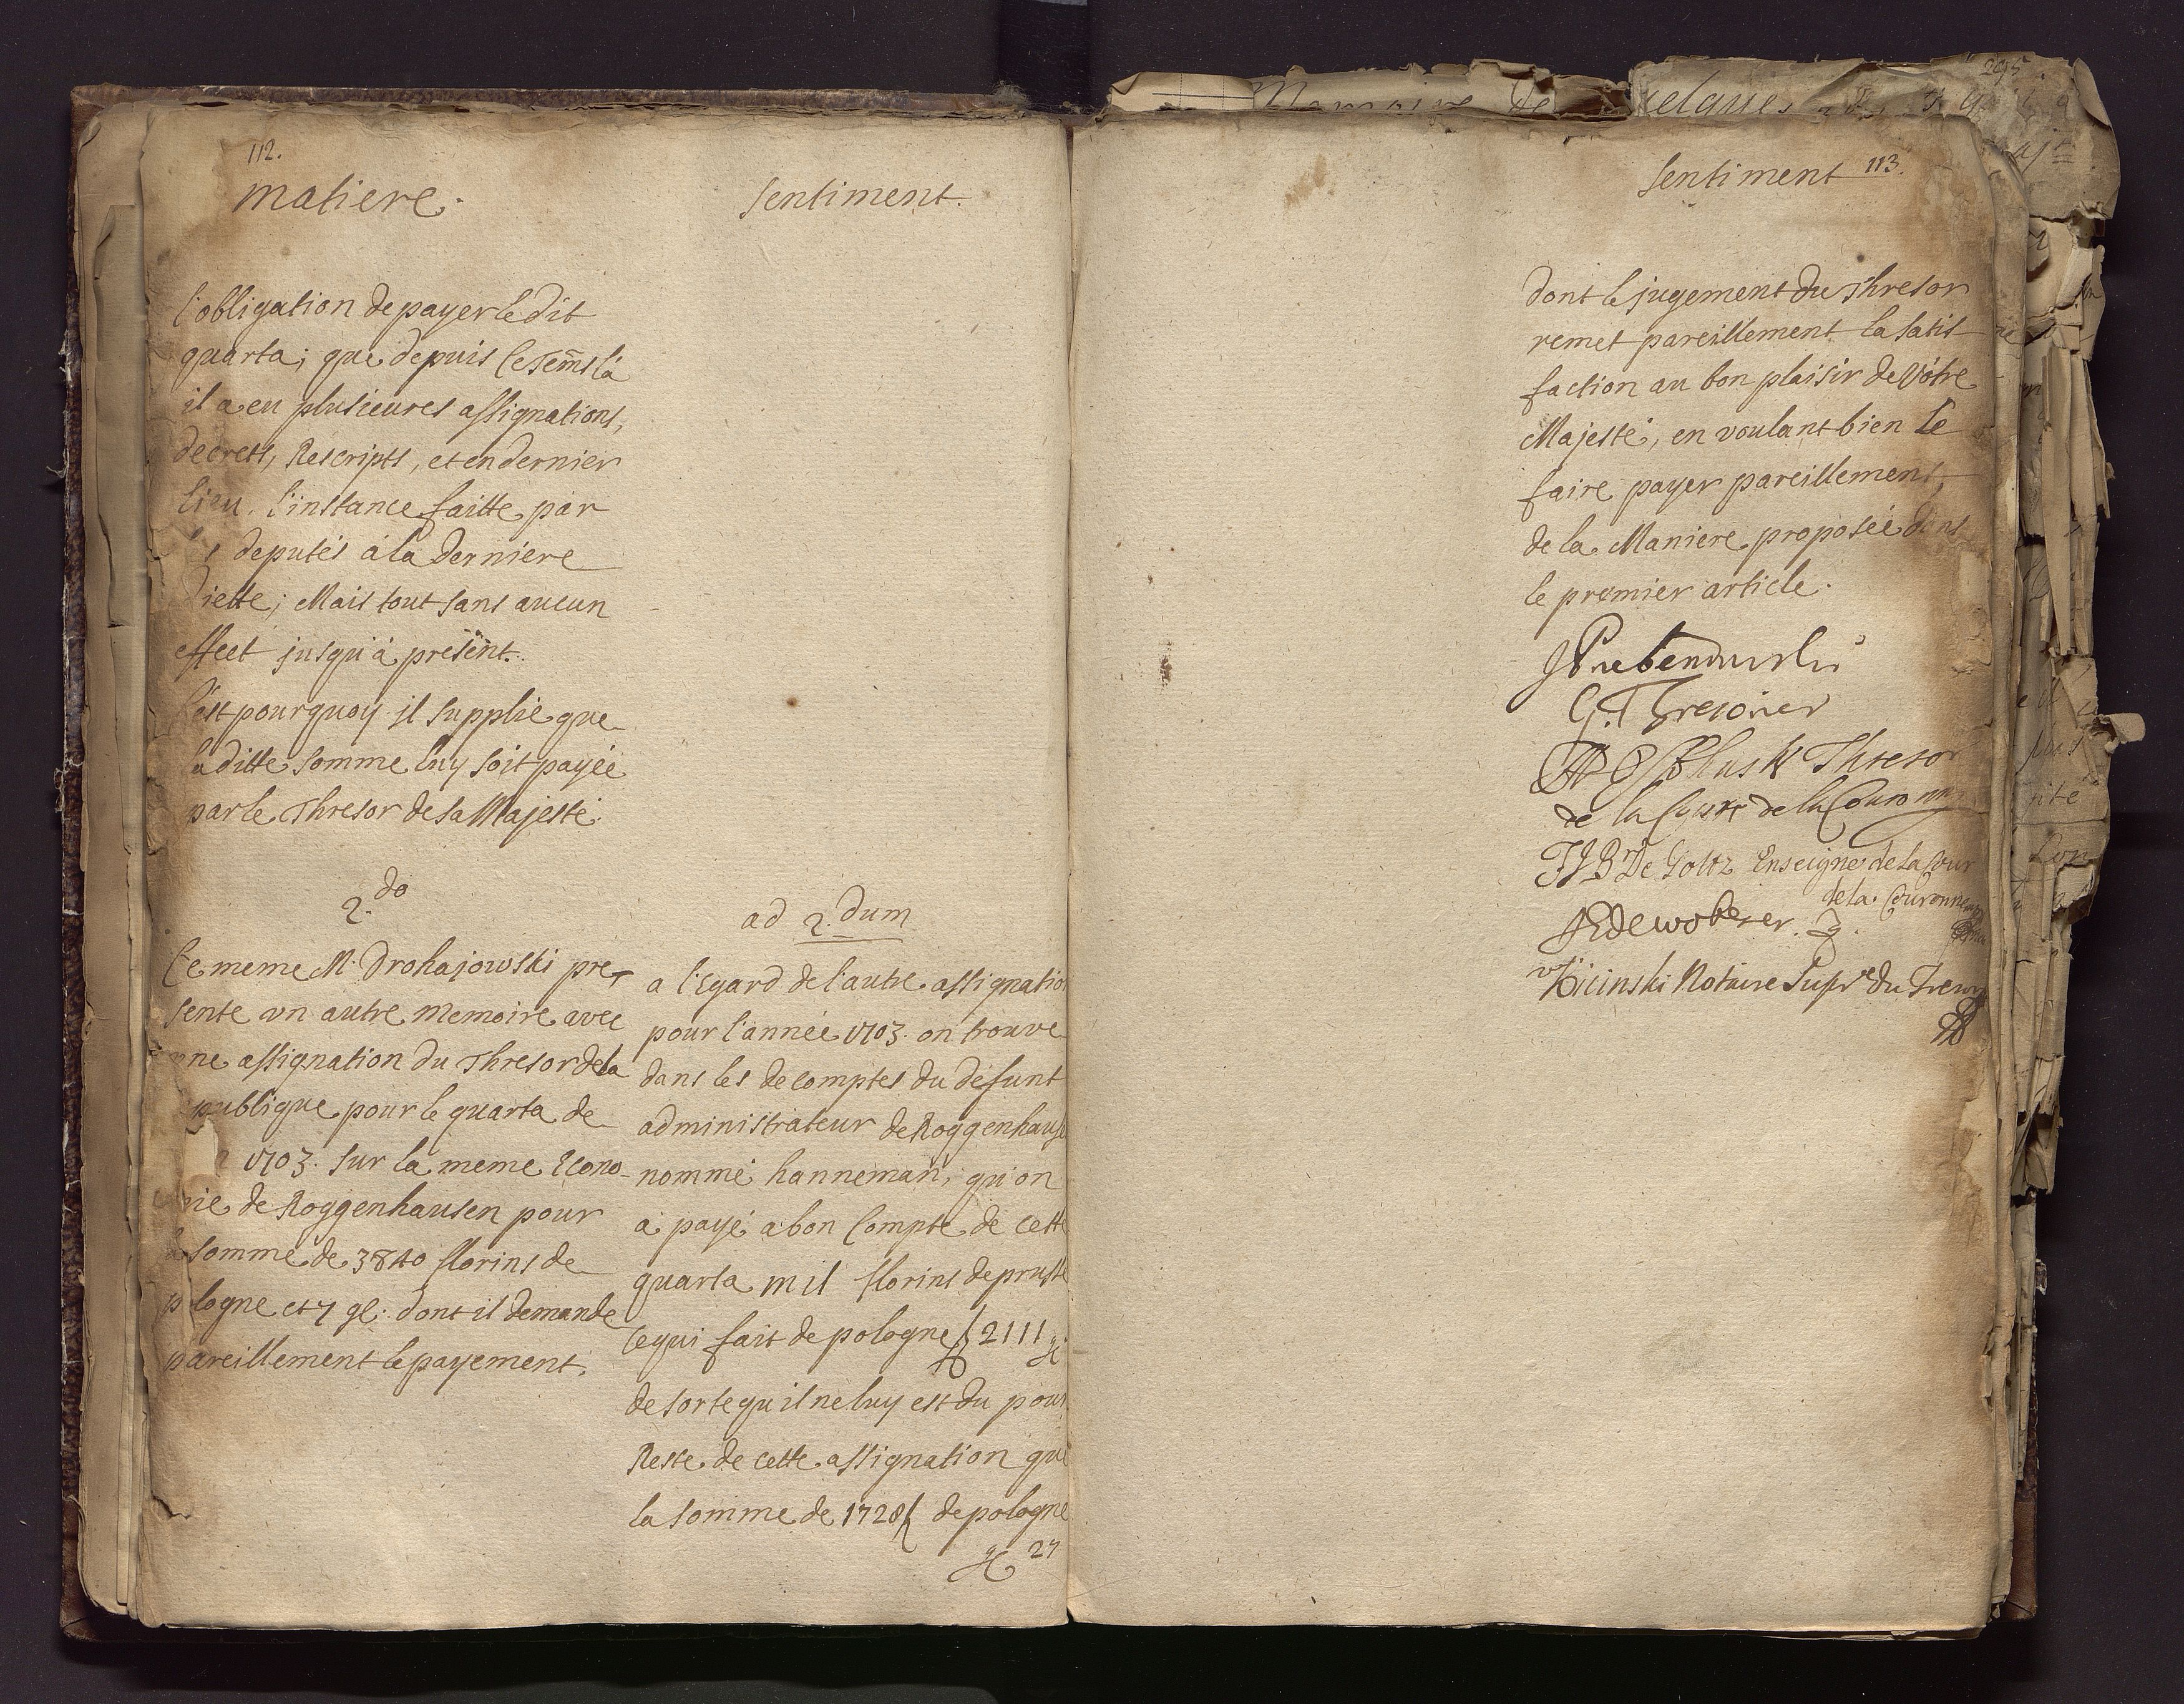 112.
matiere.
l'obligation de payer le dit
quarta; que depuis ce tem̄s la
il a eu plusieures assignations,
decrets, Rescripts, et en dernier
lieu. l'instance faitte par
deputés á la derniere
Diette; Mais tout sans aucun
effect jusqu'á present.
C'est pourquoy il supplie que
la ditte somme luy soit payée
par le Thresor de sa Majesté.
2.do
Le meme M. Drohajowski pre-
sente un autre memoire avec
une assignation du Thresor de la
publique pour le quarta de
1703. sur la meme Econo-
mie de Roggenhausen pour
la somme de 3840 florins de
pologne et 7 gl: dont il demande
pareillement le payement.
Sentiment.
ad 2.dum
a l'Egard de l'autre assignation
pour l'année 1703. on trouve
dans les decomptes du defunt
administrateur de Roggenhause
nommé hanneman, qu'on
a payé a bon Compte de cette
quarta mil florins de prusse
ce qui fait de pologne f 2111 gl
de sorte qu'il ne luy est du pour
Reste de cette assignation que
la somme de 1728 f de pologne
gl 27
Sentiment 113.
dont le jugement du Thresor
remet pareillement la satis
faction au bon plaisir de Vôtre
Majesté, en voulant bien le
faire payer pareillement,
de la Maniere proposée dans
le premier article.
G. Thresorier
Thresor
de la Cour de la Couronne
De Goltz Enseigne de la Cour
de la Couronne
Notaire Supr du Tresor
295
Memoire De quelques